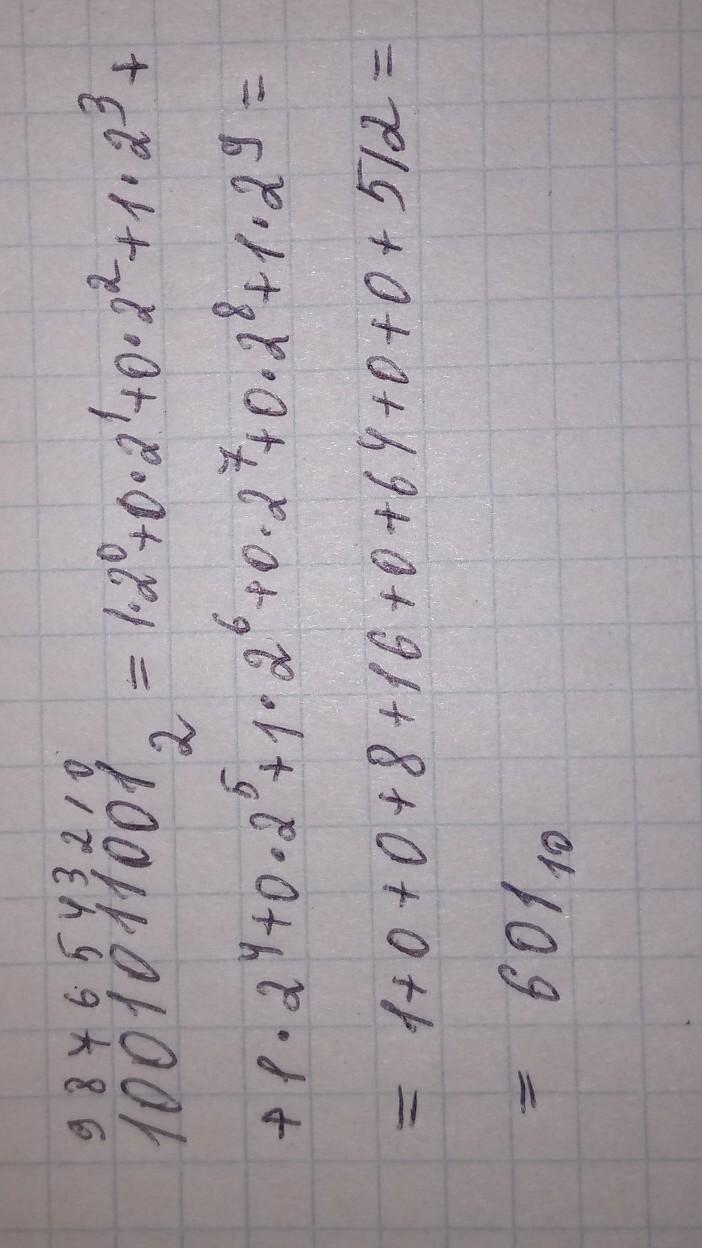 9 8 7 6 5 4 3 2 1 0
1001011001₂ = 1·2⁰+0·2¹+0·2²+1·2³+
+1·2⁴+0·2⁵+1·2⁶+0·2⁷+0·2⁸+1·2⁹=
= 1+0+0+8+16+0+64+0+0+512=
= 601₁₀